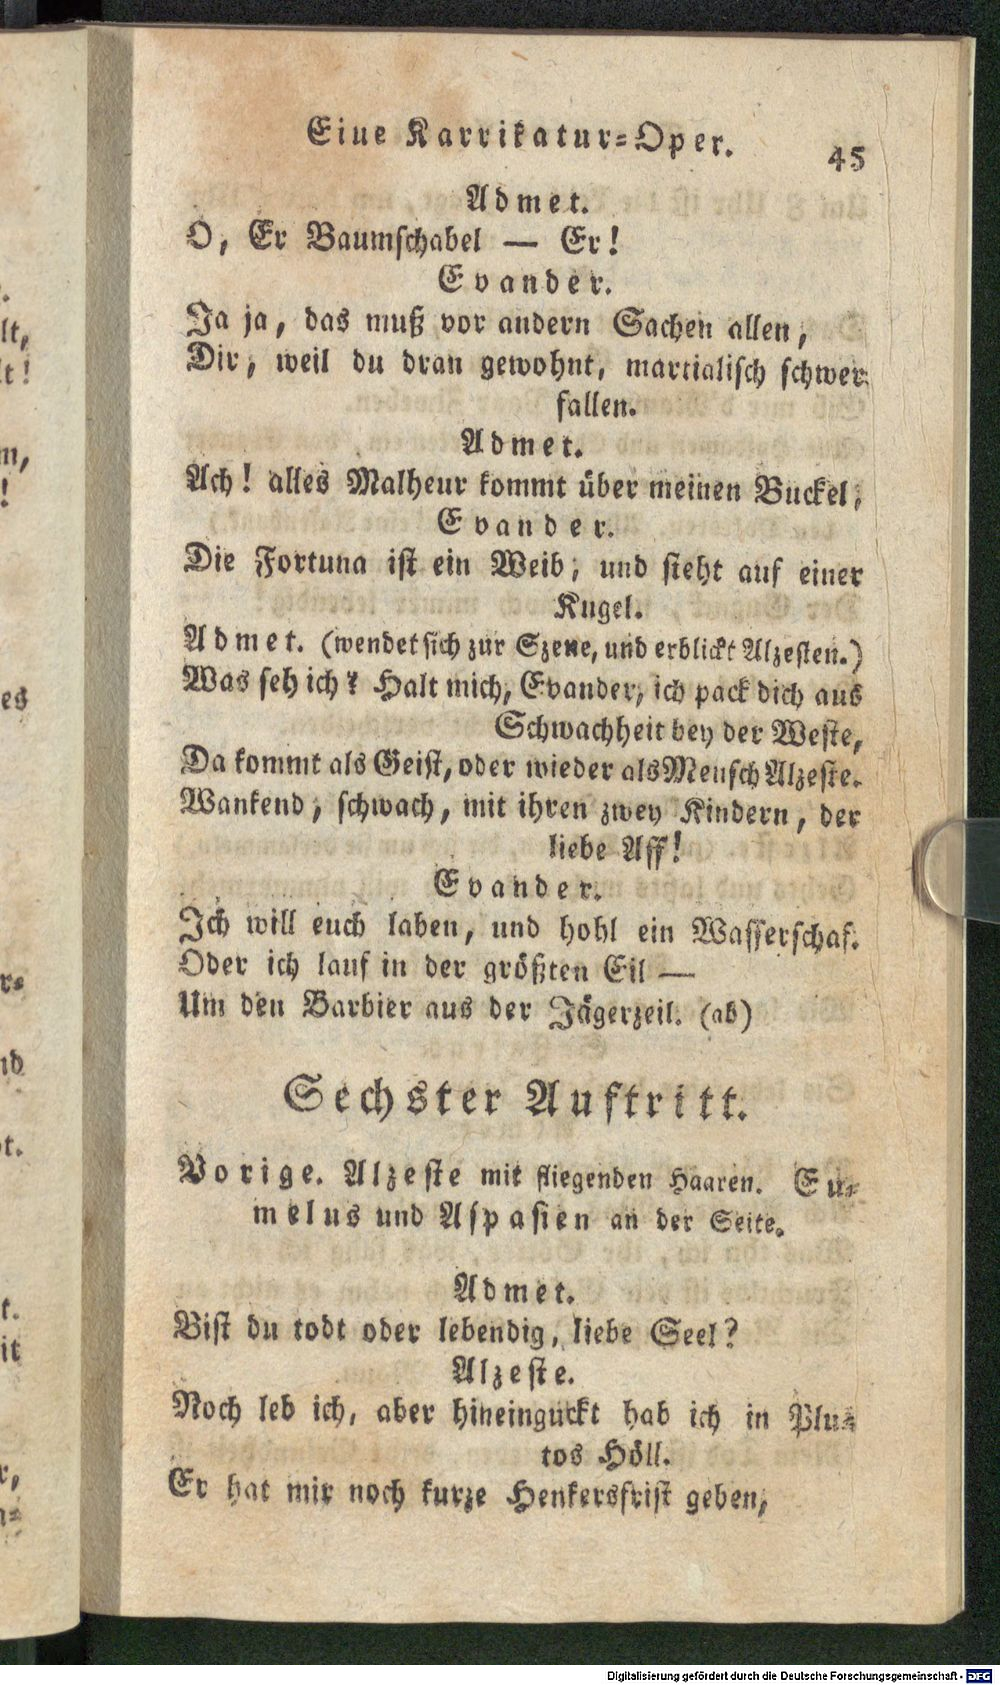 Eine Karrikatur=Oper.
45
Admet.
O, Er Baumschabel — Er!
Evander.
Ja ja, das muß vor andern Sachen allen,
Dir, weil du dran gewohnt, martialisch schwer
fallen.
Admet.
Ach! alles Malheur kommt über meinen Buckel,
Evander.
Die Fortuna ist ein Weib, und steht auf einer
Kugel.
Admet. (wendet sich zur Szene, und erblickt Alzesten.)
Was seh ich? Halt mich, Evander, ich pack dich aus
Schwachheit bey der Weste,
Da kommt als Geist, oder wieder als Mensch Alzeste.
Wankend, schwach, mit ihren zwey Kindern, der
liebe Aff!
Evander.
Ich will euch laben, und hohl ein Wasserschaf.
Oder ich lauf in der größten Eil —
Um den Barbier aus der Jägerzeil. (ab)
Sechster Auftritt.
Vorige. Alzeste mit fliegenden Haaren. Eu=
melus und Aspasien an der Seite.
Admet.
Bist du todt oder lebendig, liebe Seel?
Alzeste.
Noch leb ich, aber hineinguckt hab ich in Plu=
tos Höll.
Er hat mir noch kurze Henkersfrist geben,
lt,
lt!
m,
!
es
r=
nd
t.
t.
it
r,
n=
Digitalisierung gefördert durch die Deutsche Forschungsgemeinschaft - DFG